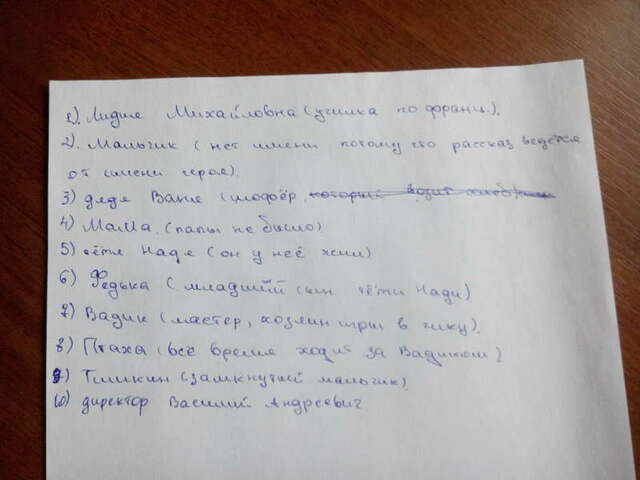 1). Лидия Михайловна (училка по франц.).
2). Мальчик (нет имени потому что рассказ ведётся
от имени героя).
3) дядя Ваня (шофёр, который возит
4) Мама. (папы не было)
5) тётя Надя (он у неё жил)
6) Федька (младший сын тёти Нади)
7) Вадик (мастер, хозяин игры в чику).
8) Птаха (всё время ходит за Вадиком)
9) Тишкин (замкнутый мальчик).
10) директор Василий Андреевич